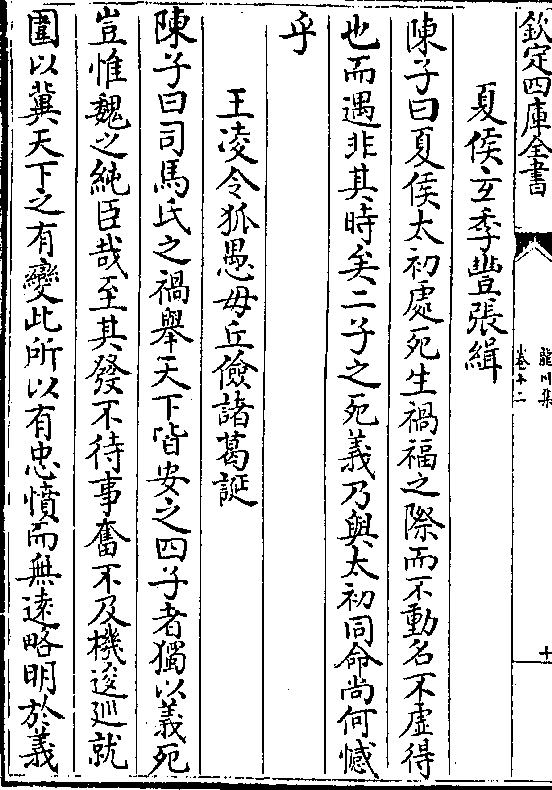 欽定四庫全書
龍川集
卷十二
十
夏侯玄季豐張緝
陳子曰夏侯太初處死生禍福之際而不動名不虛得
也而遇非其時矣二子之死義乃與太初同命尚何憾
乎
王凌令狐愚毋丘儉諸葛誕
陳子曰司馬氏之禍舉天下皆安之四子者獨以義死
豈惟魏之純臣哉至其發不待事奮不及機逡巡就
圍以冀天下之有變此所以有忠憤而無遠略明於義